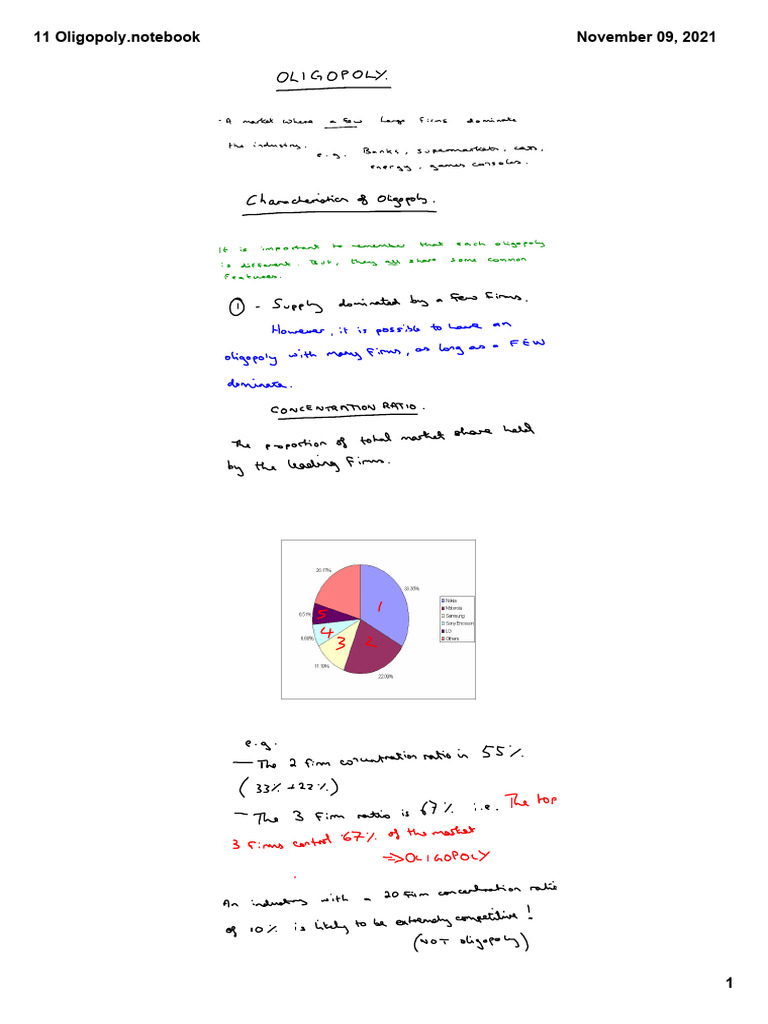 11 Oligopoly.notebook
November 09, 2021
OLIGOPOLY.
- A market where a few large firms dominate
the industry.
e.g. Banks, supermarkets, cars,
energy, games consoles.
Characteristics of Oligopoly.
It is important to remember that each oligopoly
is different. But, they all share some common
features.
1 - Supply dominated by a few firms.
However, it is possible to have an
oligopoly with many firms, as long as a FEW
dominate.
CONCENTRATION RATIO.
The proportion of total market share held
by the leading firms.
20.17%
6.51%
11.19%
22.09%
1
2
3
4
5
Nokia
Motorola
Samsung
Sony Ericsson
LG
Others
e.g.
- The 2 firm concentration ratio is 55%.
(33% + 22%)
- The 3 firm ratio is 67% i.e. The top
3 firms control 67% of the market
=> OLIGOPOLY
An industry with a 20 firm concentration ratio
of 10% is likely to be extremely competitive!
(NOT oligopoly)
1